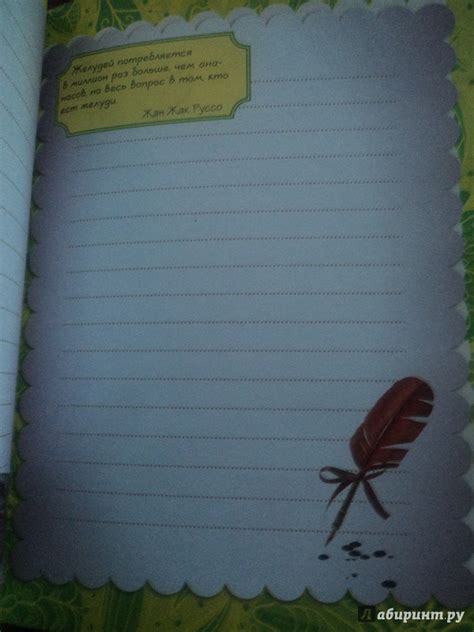 Желудей потребляется
в миллион раз больше, чем ана-
насов, но весь вопрос в том, кто
ест желуди.
Жан Жак Руссо
Лабиринт.ру